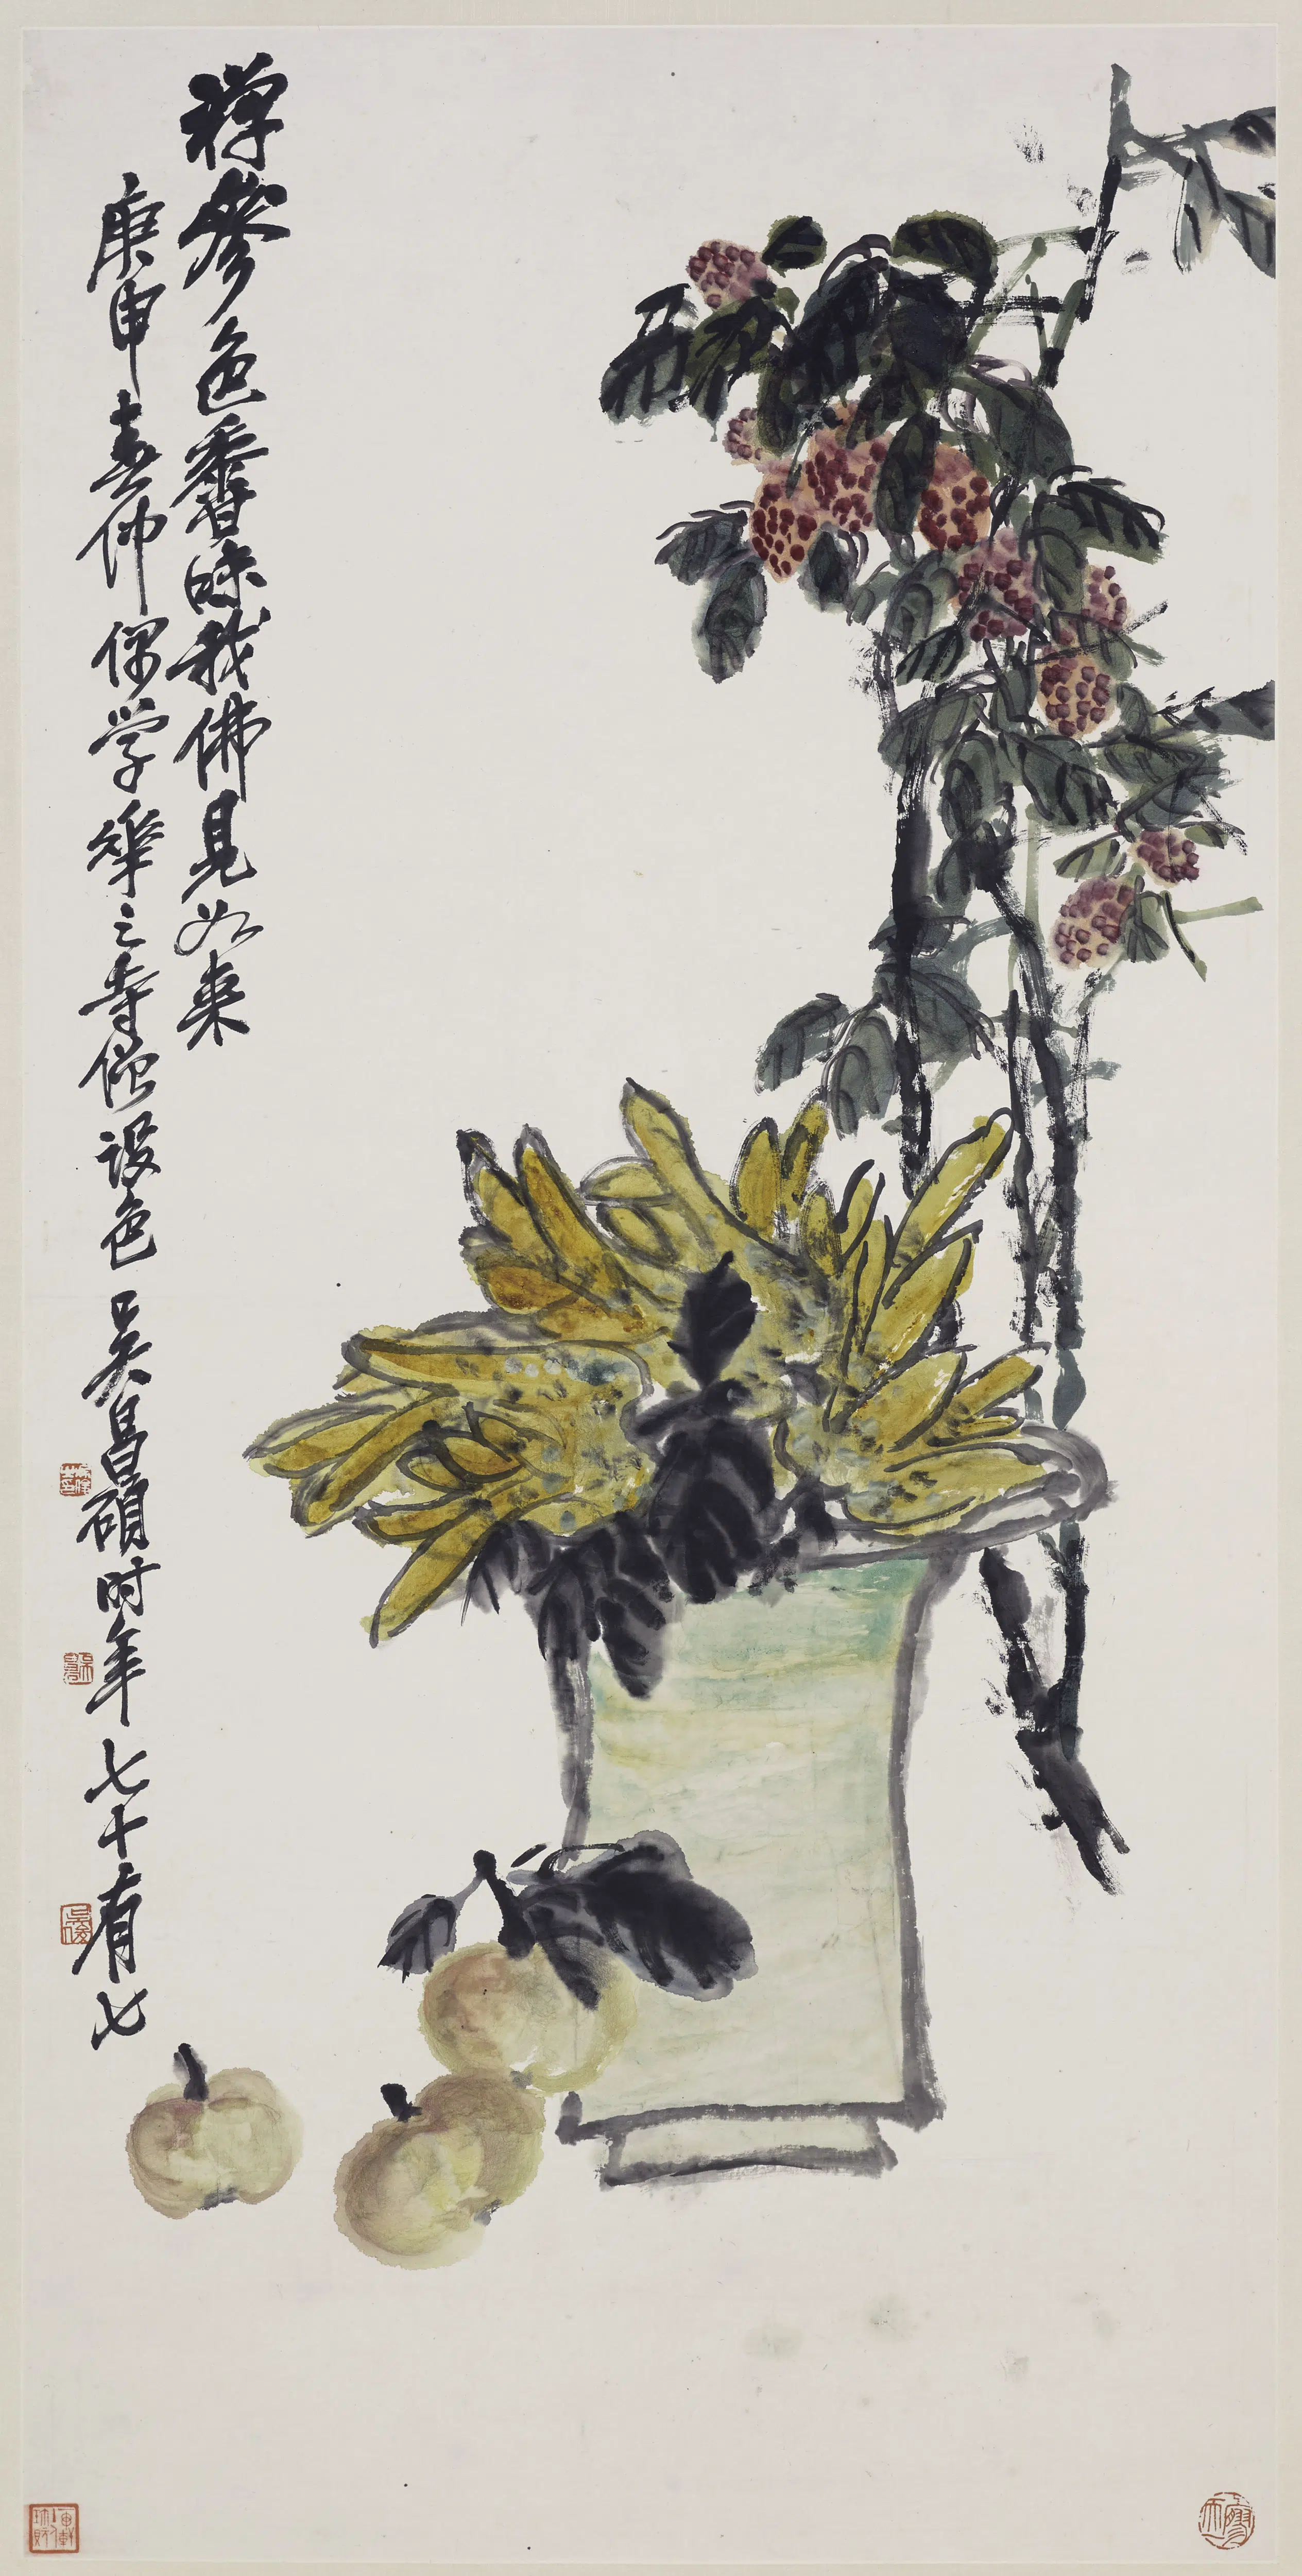 禅參色香味我佛見如来
庚申春仲偶学華之寺僧設色吴昌碩时年七十有七